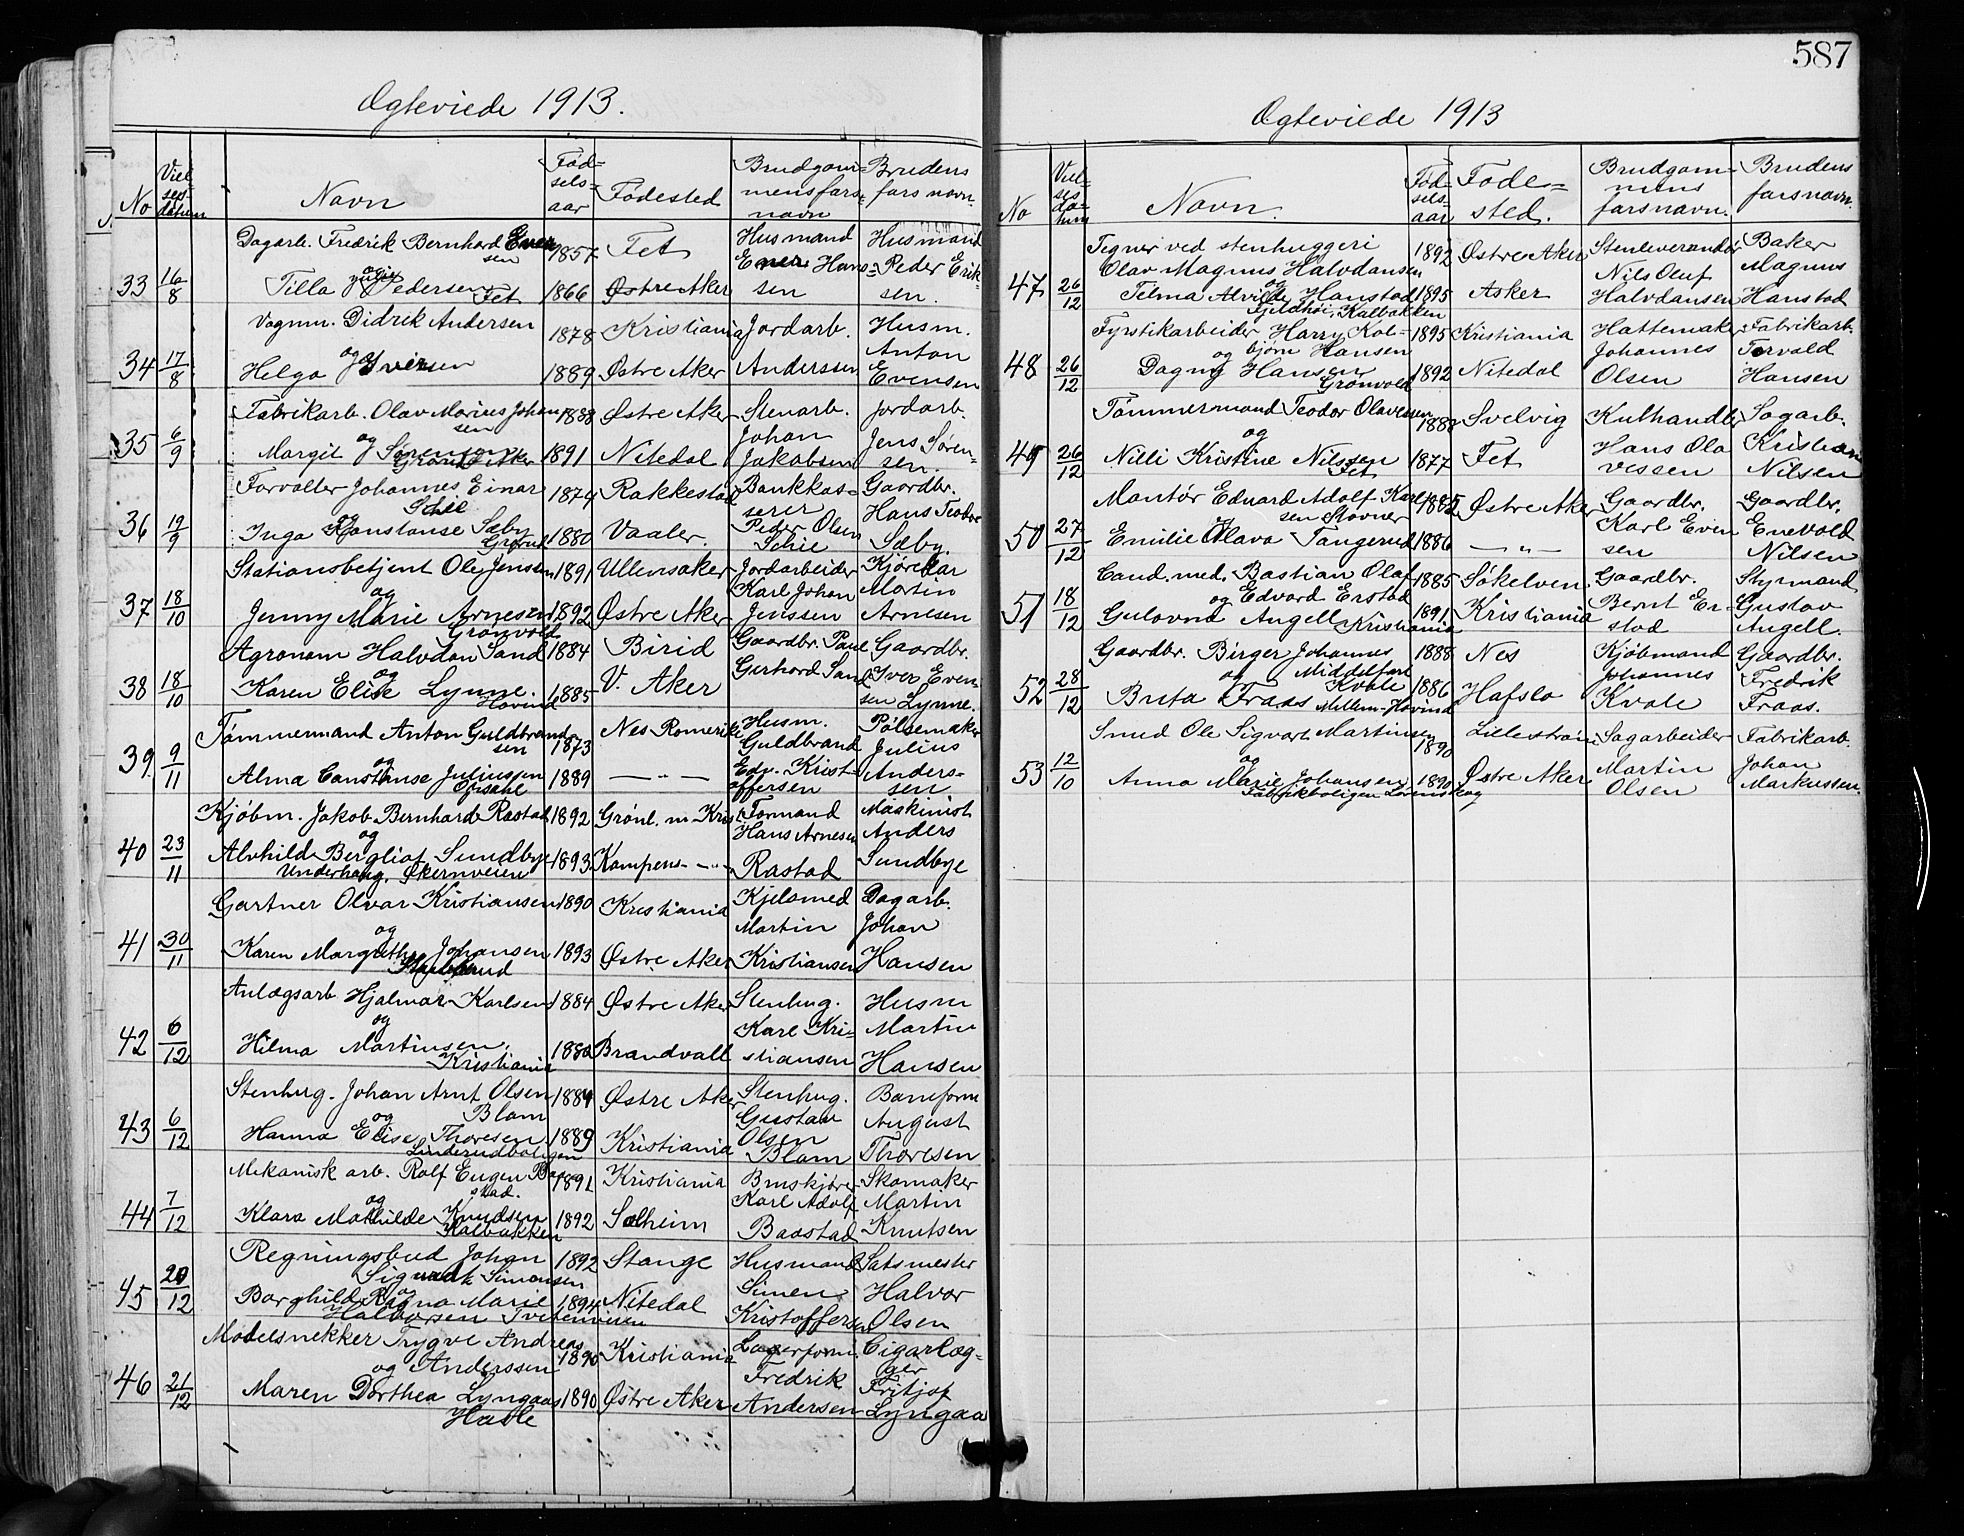 587
Ægteviede 1913.
No Vielsesdatum Navn Fødselsaar Fødested Brudgommensfarsnavn Brudens farsnavn
Dagarb. Fredrik Bernhard Evensen 1857 Fet Husmand Even Hansen Husmand Peder Eriksen.
33 16/8 og Tilla Pedersen Fet 1866 Østre Aker
Vognm. Didrik Andersen 1878 Kristiania Jordarb. Anderssen Husm. Anton Evensen
34 17/8 og Helga Iversen 1889 Østre Aker
Fabrikarb. Olav Marius Johansen 1888 Østre Aker Stenarb. Johan Jakobsen Jordarb. Jens Sørensen.
35 6/9 og Margit Sørensen Grorud Aker 1891 Nitedal
Forvalter Johannes Einar Schie 1874 Rakkestad Bankkasserer Peder Olsen Schie Gaardbr. Hans Teodor Sæby.
36 19/9 og Inga Konstanse Sæby Grorud 1880 Vaaler.
Stationsbetjent Ole Jensen 1891 Ullensaker Jordarbeider Karl Johan Jenssen Kjørekar Martin Arnesen
37 18/10 og Jenny Marie Arnesen Grønvold 1892 Østre Aker
Agronom Halvdan Sand 1884 Birid Gaardbr. Paul Gerhard Sand Gaardbr. Iver Evensen Lynne.
38 18/10 og Karen Elise Lynne. Hovind 1885 V. Aker
Tømmermand Anton Guldbrandsen 1873 Nes Romerike Husm. Guldbrand Edv. Kristoffersen Pølsemaker Julius Anderssen
39 9/11 og Alma Constanse Juliussen Opsahl 1889 — " —
Kjøbm. Jakob Bernhard Rastad 1892 Grønl. m Krist Formand Hans Arnesen Rastad Maskinist Anders Sundbye
40 23/11 og Alvhild Bergliot Sundbye Underhaug, Økernveien 1893 Kampens — " —
Gartner Olvar Kristiansen 1890 Kristiania Kjelsmed Martin Kristiansen Dagarb. Johan Hansen
41 30/11 og Karen Margrethe Johansen 1893 Østre Aker
Anlægsarb. Hjalmar Karlsen 1884 Østre Aker Stenhug. Karl Kristiansen Husm Martin Hansen
42 6/12 og Hilma Martinsen. Kristiania 1880 Brandvall
Stenhug. Johan Arnt Olsen Blom 1884 Østre Aker Stenhug. Gustav Olsen Blom Baneform August Thoresen
43 6/12 og Hanna Elise Thoresen Linderudboligen 1889 Kristiania
Mekanisk arb. Rolf Eugen Baastad. 1891 Kristiania Bruskjører Karl Adolf Baastad Skomaker Martin Knutsen
44 7/12 og Klara Mathilde Knudsen Kalbakken 1892 Solheim
Regningsbud Johan Sigvart Simensen 1892 Stange Husmand Simen Kristoffersen Satsmester Halvor Olsen
45 20/12 og Borghild Ragna Marie Halvorsen Tvetenveien 1894 Nitedal
Modelsnekker Trygve Andreas Anderssen 1890 Kristiania Lagerform. Fredrik Andersen Cigarlægger Fritjof Lyngaa
46 21/12 og Maren Dorthea Lyngaas Hasle 1890 Østre Aker
Ægteviede 1913
No Vielsesdatum Navn. Fødselsaar Fødested. Brudgommens farsnavn. Brudens farsnavn.
Tegner ved stenhuggeri Olav Magnus Halvdansen 1892 Østre Aker Stenleverandør Nils Oluf Halvdansen Baker Magnus Hanstad
47 26/12 og Telma Alvilde Hanstad Fjeldhøi, Kalbakken 1895 Asker
Fyrstikarbeider Harry Kolbjørn Hansen 1895 Kristiania Hattemaker Johannes Olsen Fabrikarb. Torvald Hansen
48 26/12 og Dagny Hansen Grønvold 1892 Nitedal
Tømmermand Teodor Olavessen 1888 Svelvig Kulhandler Hans Olavessen Sagarb. Kristian Nilsen
49 26/12 og Nilli Kristine Nilssen Fet 1877 Fet
Montør Edvard Adolf Karlsen Stovner 1885 Østre Aker Gaardbr. Karl Evensen Gaardbr. Enevold Nilsen
50 27/12 og Emilie Olava Tangerud 1886 — " —
Cand. med. Bastian Olaf Edvard Erstad 1885 Søkelven. Gaardbr. Bernt Erstad Styrmand Gustav Angell.
51 18/12 og Gulovnd Angell Kristiania 1891 Kristiania
Gaardbr. Birger Johannes Middelfart Kvale 1888 Nes Kjøbmand Johannes Kvale Gaardbr. Fredrik Fraas.
52 28/12 og Brita Fraas Mellem-Hovind 1886 Hafslo
Smed Ole Sigvart Martinsen 1890 Lillestrøm Sagarbeider Martin Olsen Fabrikarb. Johan Markussen.
53 12/10 og Anna Marie Johansen Fabrikboligen Lørenskog 1890 Østre Aker